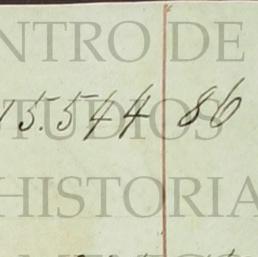 NTRO DE
15.544 86
TUDIOS
HISTORIA